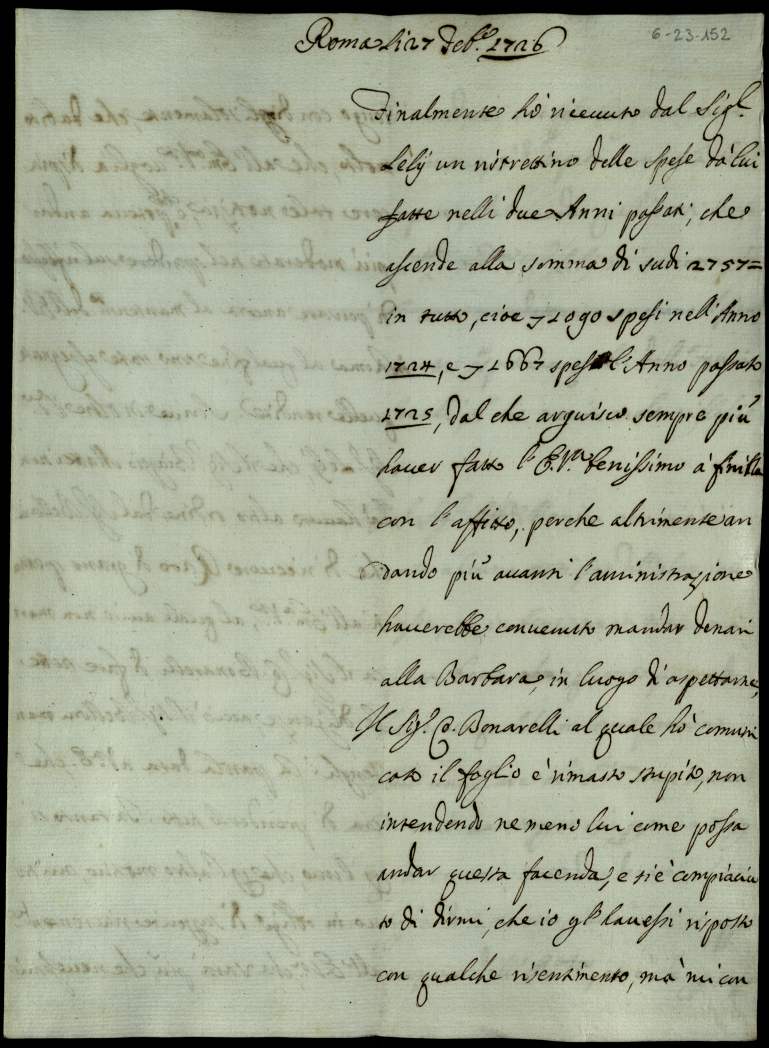 6-23-152
Roma li 27 Feb.º 1726
Finalmente hò riceuuto dal Sigr.
Lelÿ un ristrettino delle spese dà lui
fatte nelli due Anni passati, che
ascende alla somma di scudi 2757=
in tutto, cioe 1090 spesi nell'Anno
1724, e 1667 spesi l'Anno passato
1725, dal che arguisco sempre più
hauer fatto l'E.Vra benissimo à finirla
con l'affitto, perche altrimente an
dando più auanti l'aministrazione
hauerebbe conuenuto mandar denari
alla Barbara, in luogo di aspettarne,
Il Sigr. C. Bonarelli al quale hò comuni
cato il foglio è rimasto stupito, non
intendendo ne meno lui come possa
andar questa facenda, e si è compiaciu
to di dirmi, che io gl'hauessi risposto
con qualche risentimento, mà mi con